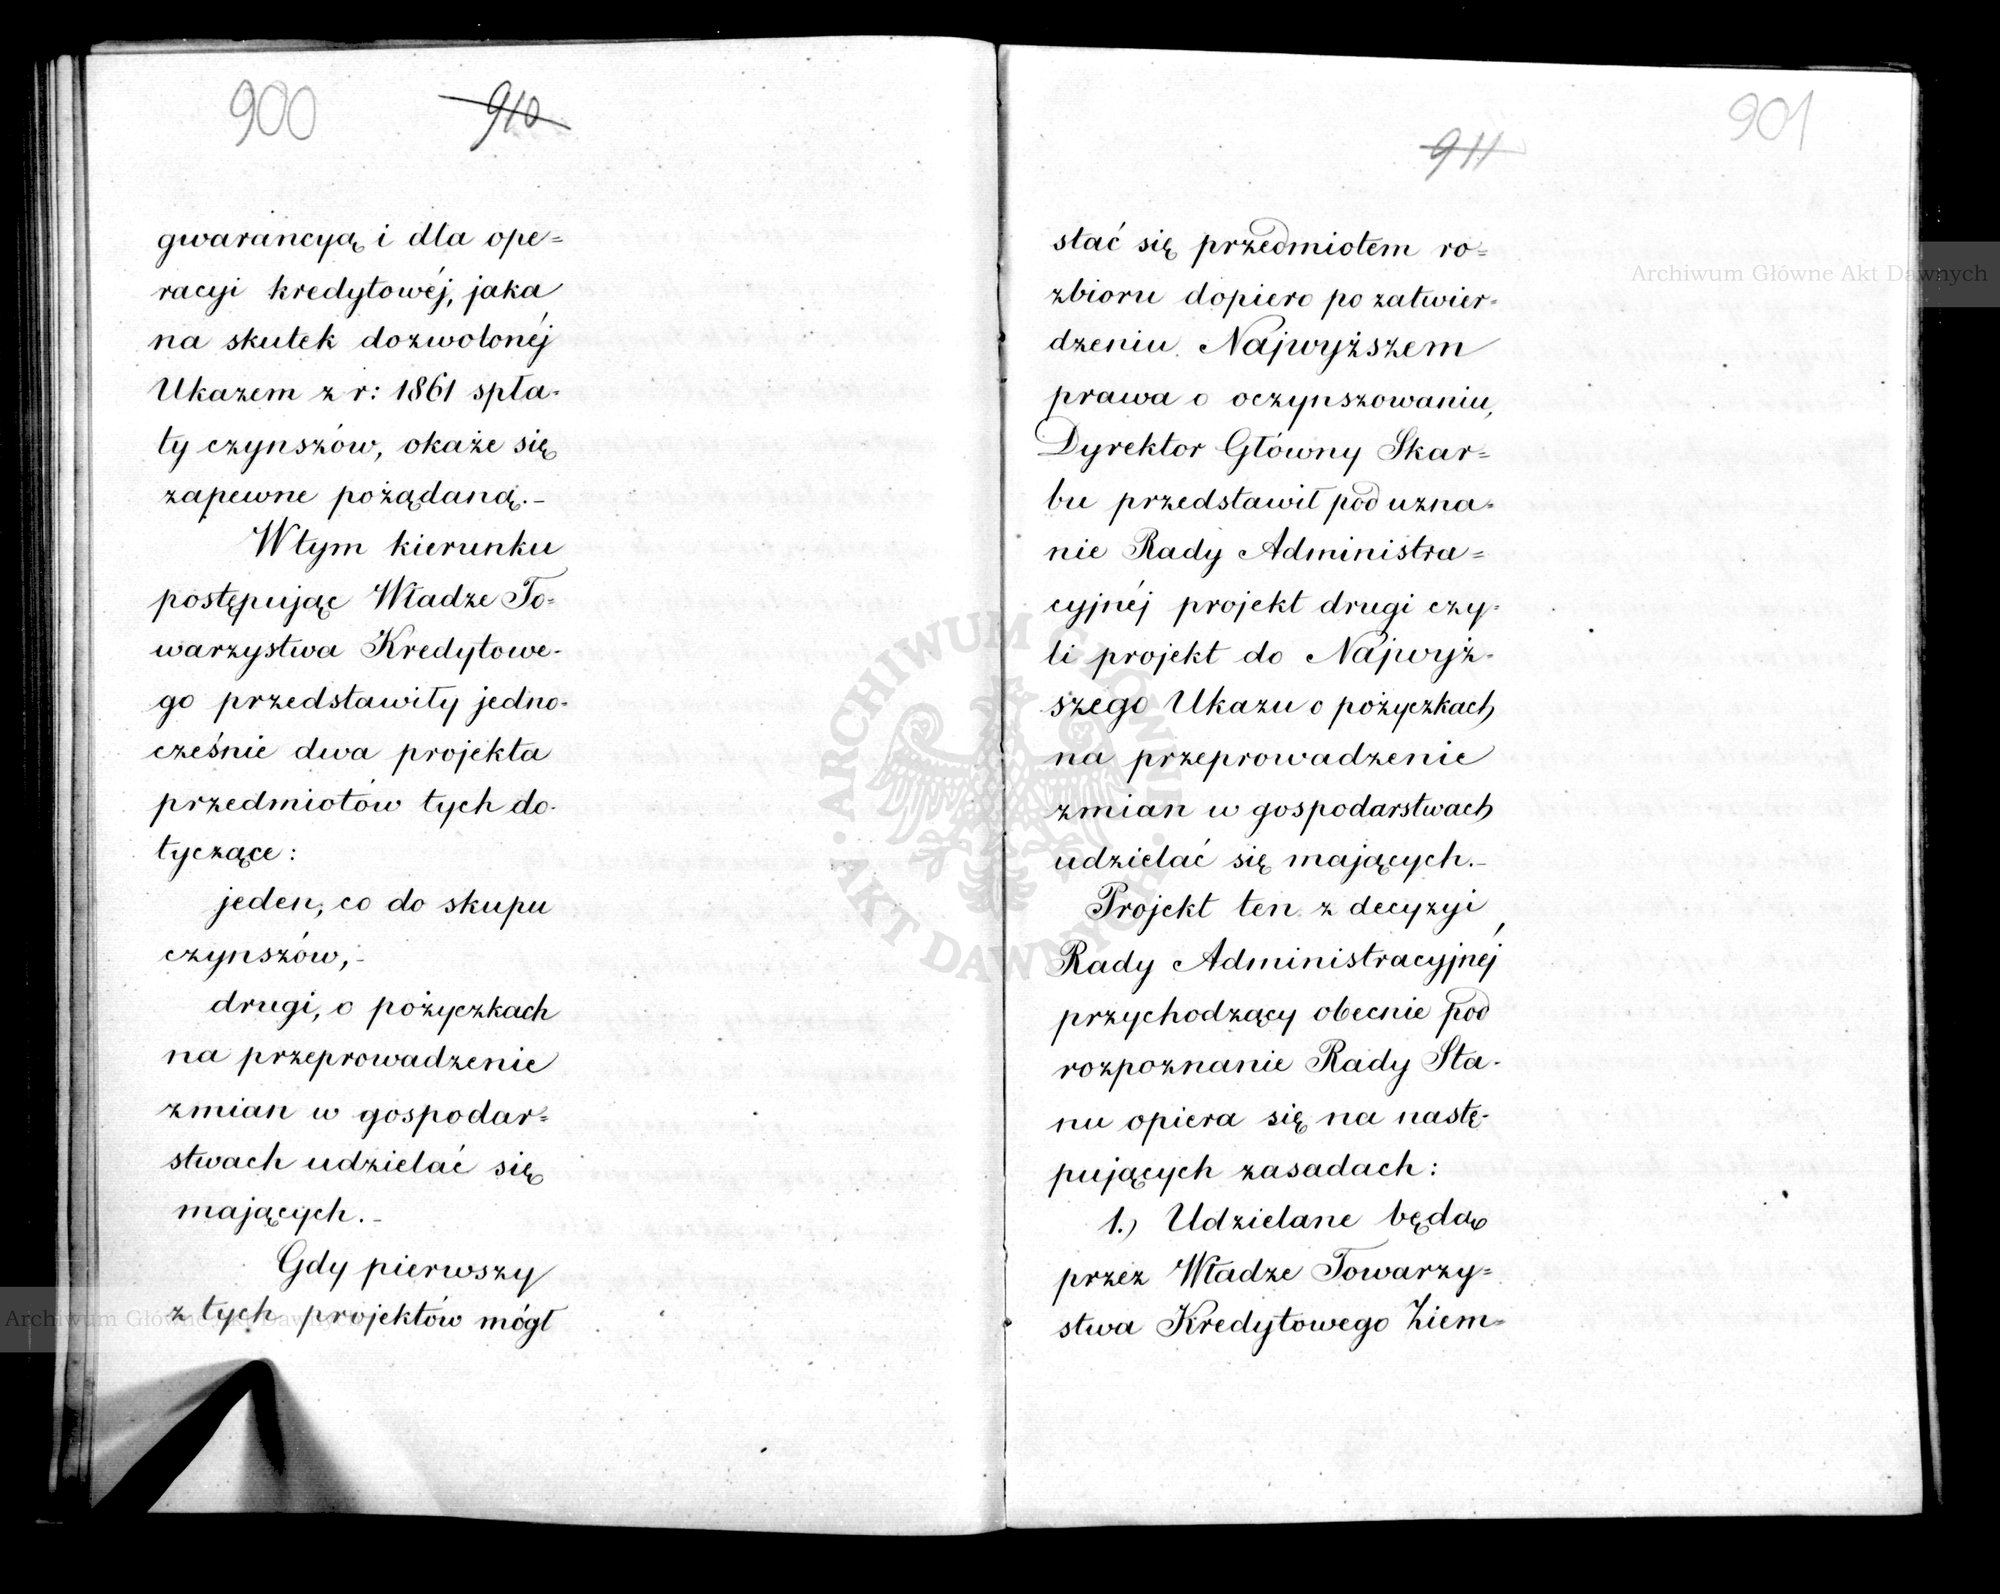 900 910
gwarancyą i dla ope=
racyi kredytowéj, jaka
na skutek dozwolonéj
Ukazem z r: 1861 spła-
ty czynszów, okaże się
zapewne pożądaną.-
W tym kierunku
postępując Władze To-
warzystwa Kredytowe-
go przedstawiły jedno-
cześnie dwa projekta
przedmiotów tych do-
tyczące:
jeden, co do skupu
czynszów,-
drugi, o pożyczkach
na przeprowadzenie
zmian w gospodar=
stwach udzielać się
mających.-
Gdy pierwszy
z tych projektów mógł
901
911
stać się przedmiotem ro=
zbioru dopiero po zatwier-
dzeniu Najwyższem
prawa o oczynszowaniu,
Dyrektor Główny Skar=
bu przedstawił pod uzna-
nie Rady Administra=
cyjnéj projekt drugi czy-
li projekt do Najwyż-
szego Ukazu o pożyczkach
na przeprowadzenie
zmian w gospodarstwach
udzielać się mających.-
Projekt ten z decyzyi
Rady Administracyjnéj
przychodzący obecnie pod
rozpoznanie Rady Sta-
nu opiera się na nastę-
pujących zasadach:
1.) Udzielane będą
przez Władze Towarzy=
stwa Kredytowego Ziem=
Archiwum Główne Akt Dawnych
Archiwum Główne Akt Dawnych
ARCHIWUM GŁÓWNE AKT DAWNYCH